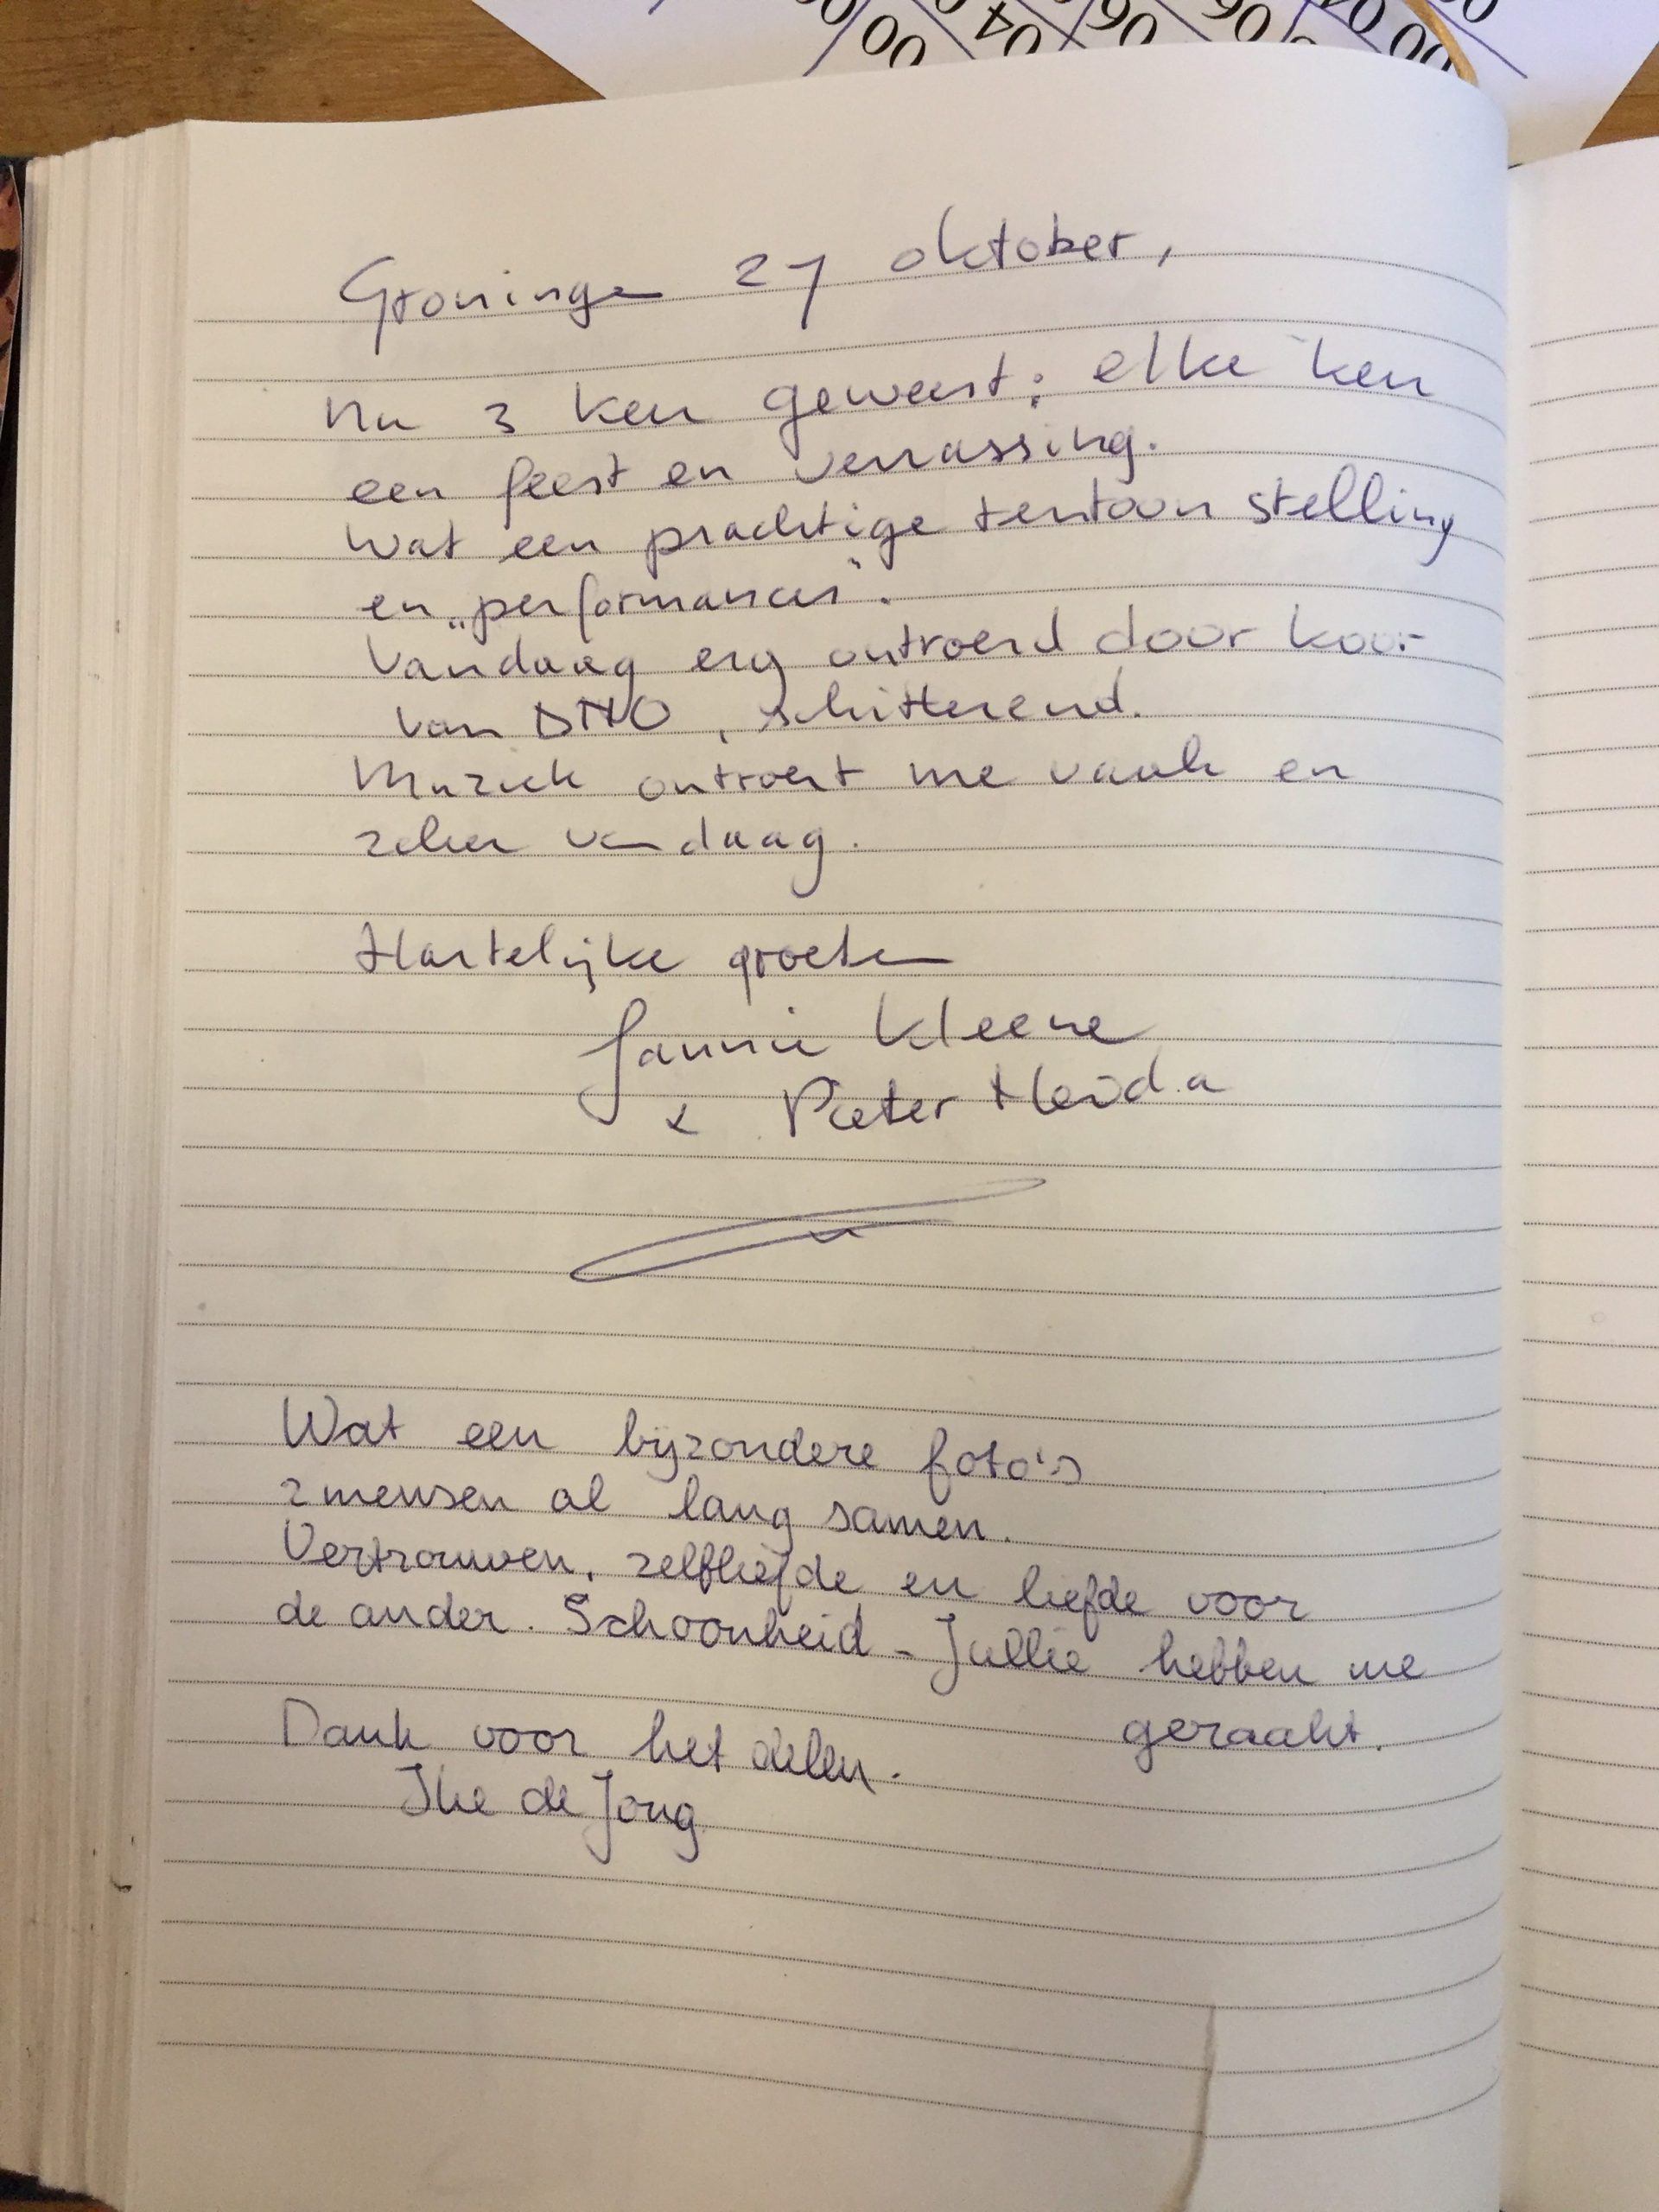 00 04 06 06 00
Groningen 27 oktober,
Nu 3 keer geweest; elke keer
een feest en verrassing.
Wat een prachtige tentoonstelling
en „performances".
Vandaag erg ontroerd door koor
van DNO, schitterend.
Muziek ontroert me vaak en
zeker vandaag.
Hartelijke groeten
Jannie Kleene
& Pieter Heida
Wat een bijzondere foto's
2 mensen al lang samen.
Vertrouwen, zelfliefde en liefde voor
de ander. Schoonheid - Jullie hebben me
geraakt.
Dank voor het delen.
de Jong